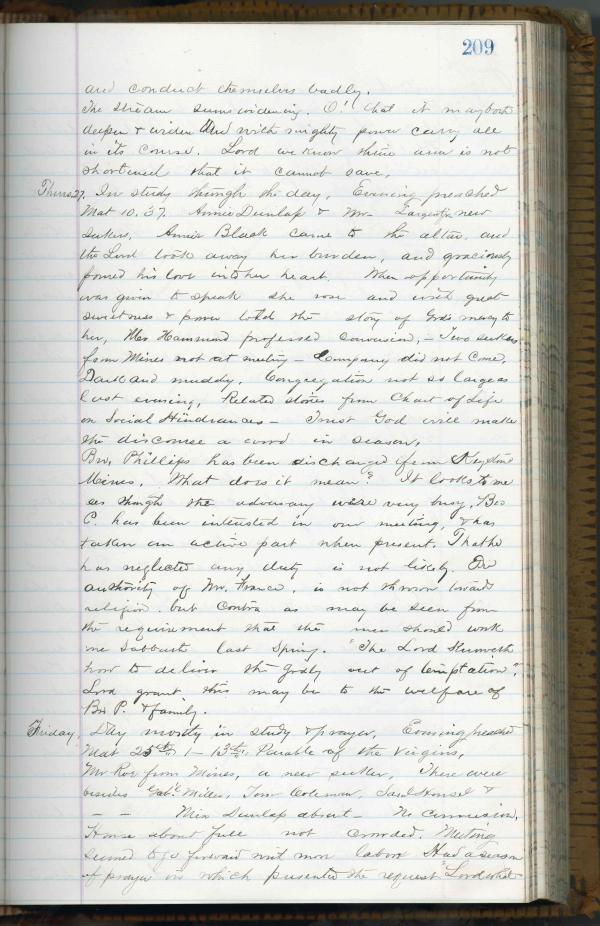 209
and conduct themselves badly.
The stream seems widening. O! that it may both
deepen & widen and with mighty power carry all
in its course. Lord we know thine arm is not
shortened that it cannot save.
Thurs 27. In study through the day. Evening preached
Mat 10.37. Annie Dunlap & Mr. new
seekers. Annie Black came to the altar and
the Lord took away her burden, and graciously
poured his love into her heart. When opportunity
was given to speak she rose and with great
sweetness & power told the story of God's mercy to
her, Mrs Hammond professed conversion, – Two seekers
from Mines not at meeting – Company did not come.
Dark and muddy. Congregation not so large as
last evening. Related stories from Chart of Life
on Social Hindrances – Trust God will make
the discourse a word in season.
Bro. Phillips has been discharged from Keystone
Mines. What does it mean? It looks to me
as though the adversary were very busy. Bro
C. has been interested in our meeting, & has
taken an active part when present. That he
has neglected any duty is not likely. The
authority of Mr. France, is not thrown toward
religion. but contra as may be seen from
the requirement that the men should work
one Sabbath last Spring. "The Lord Knoweth
how to deliver the Godly out of temptation",
Lord grant this may be to the welfare of
Bro P. & family.
Friday. Day mostly in study & prayer, Evening preached
Mat 25th, 1 – 13th, Parable of the Virgins,
Mr Roe from Mines, a new seeker, There were
besides Gabl. Miller, Tom Coleman, Saml Housel &
– – Miss Dunlap absent – No conversion.
House about full not crowded. Meeting
seemed to go forward with more labor Had a season
of prayer in which presented the request "Lord what